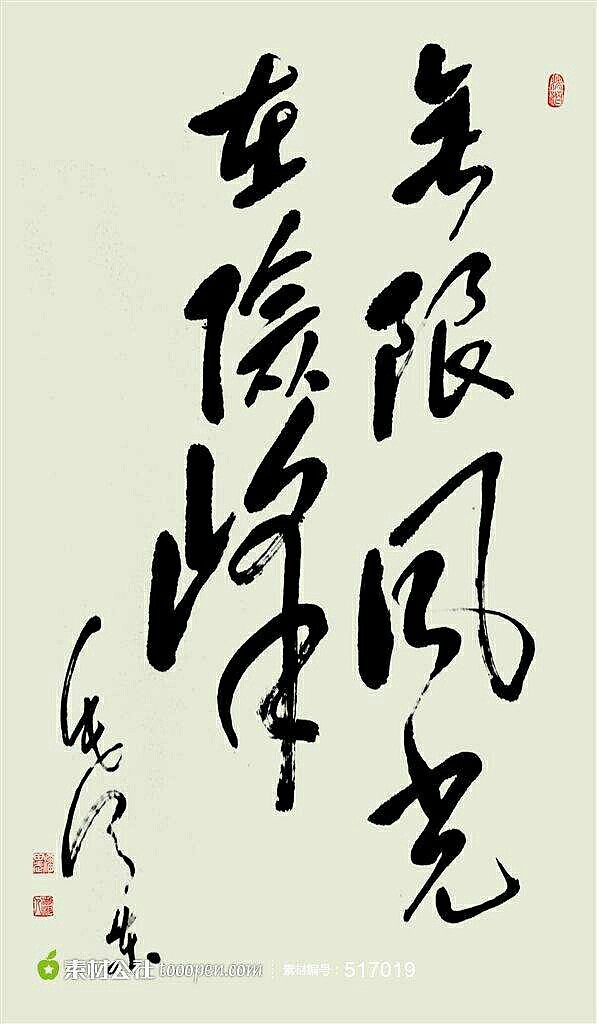 无限风光
在險峰
毛泽东
素材公社 tooopen.com 素材编号：517019